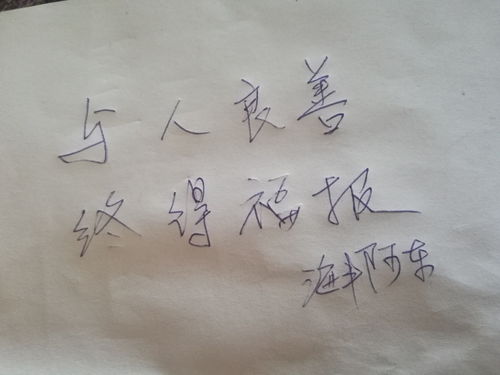 与人良善
终得福报
海阿东